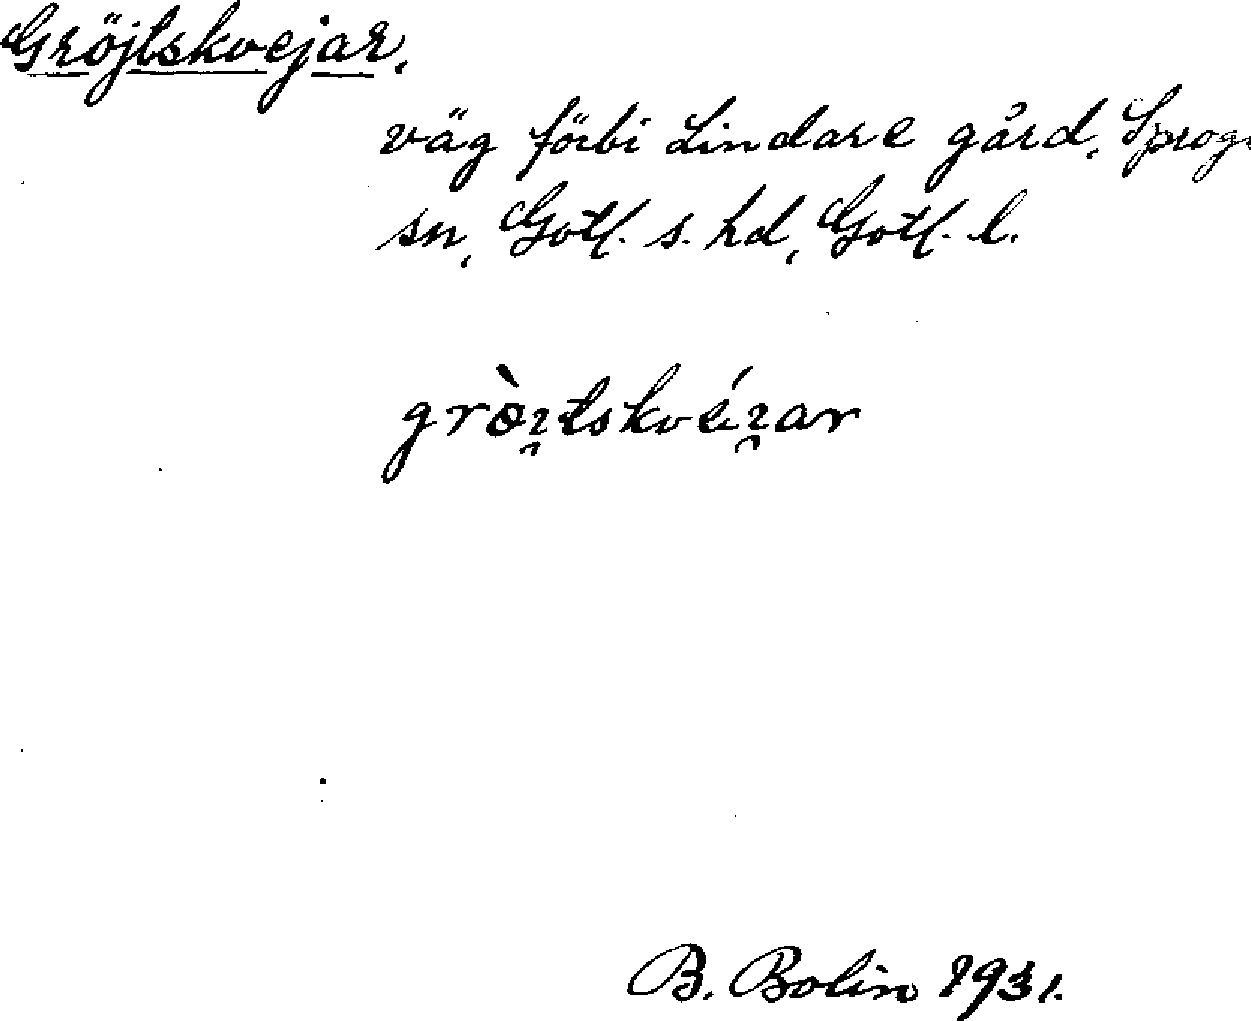 Gröjtskvejar.
väg förbi Lindare gård, Sprog
sn, Gotl. s. hd, Gotl. l.
B. Bolin 1931.